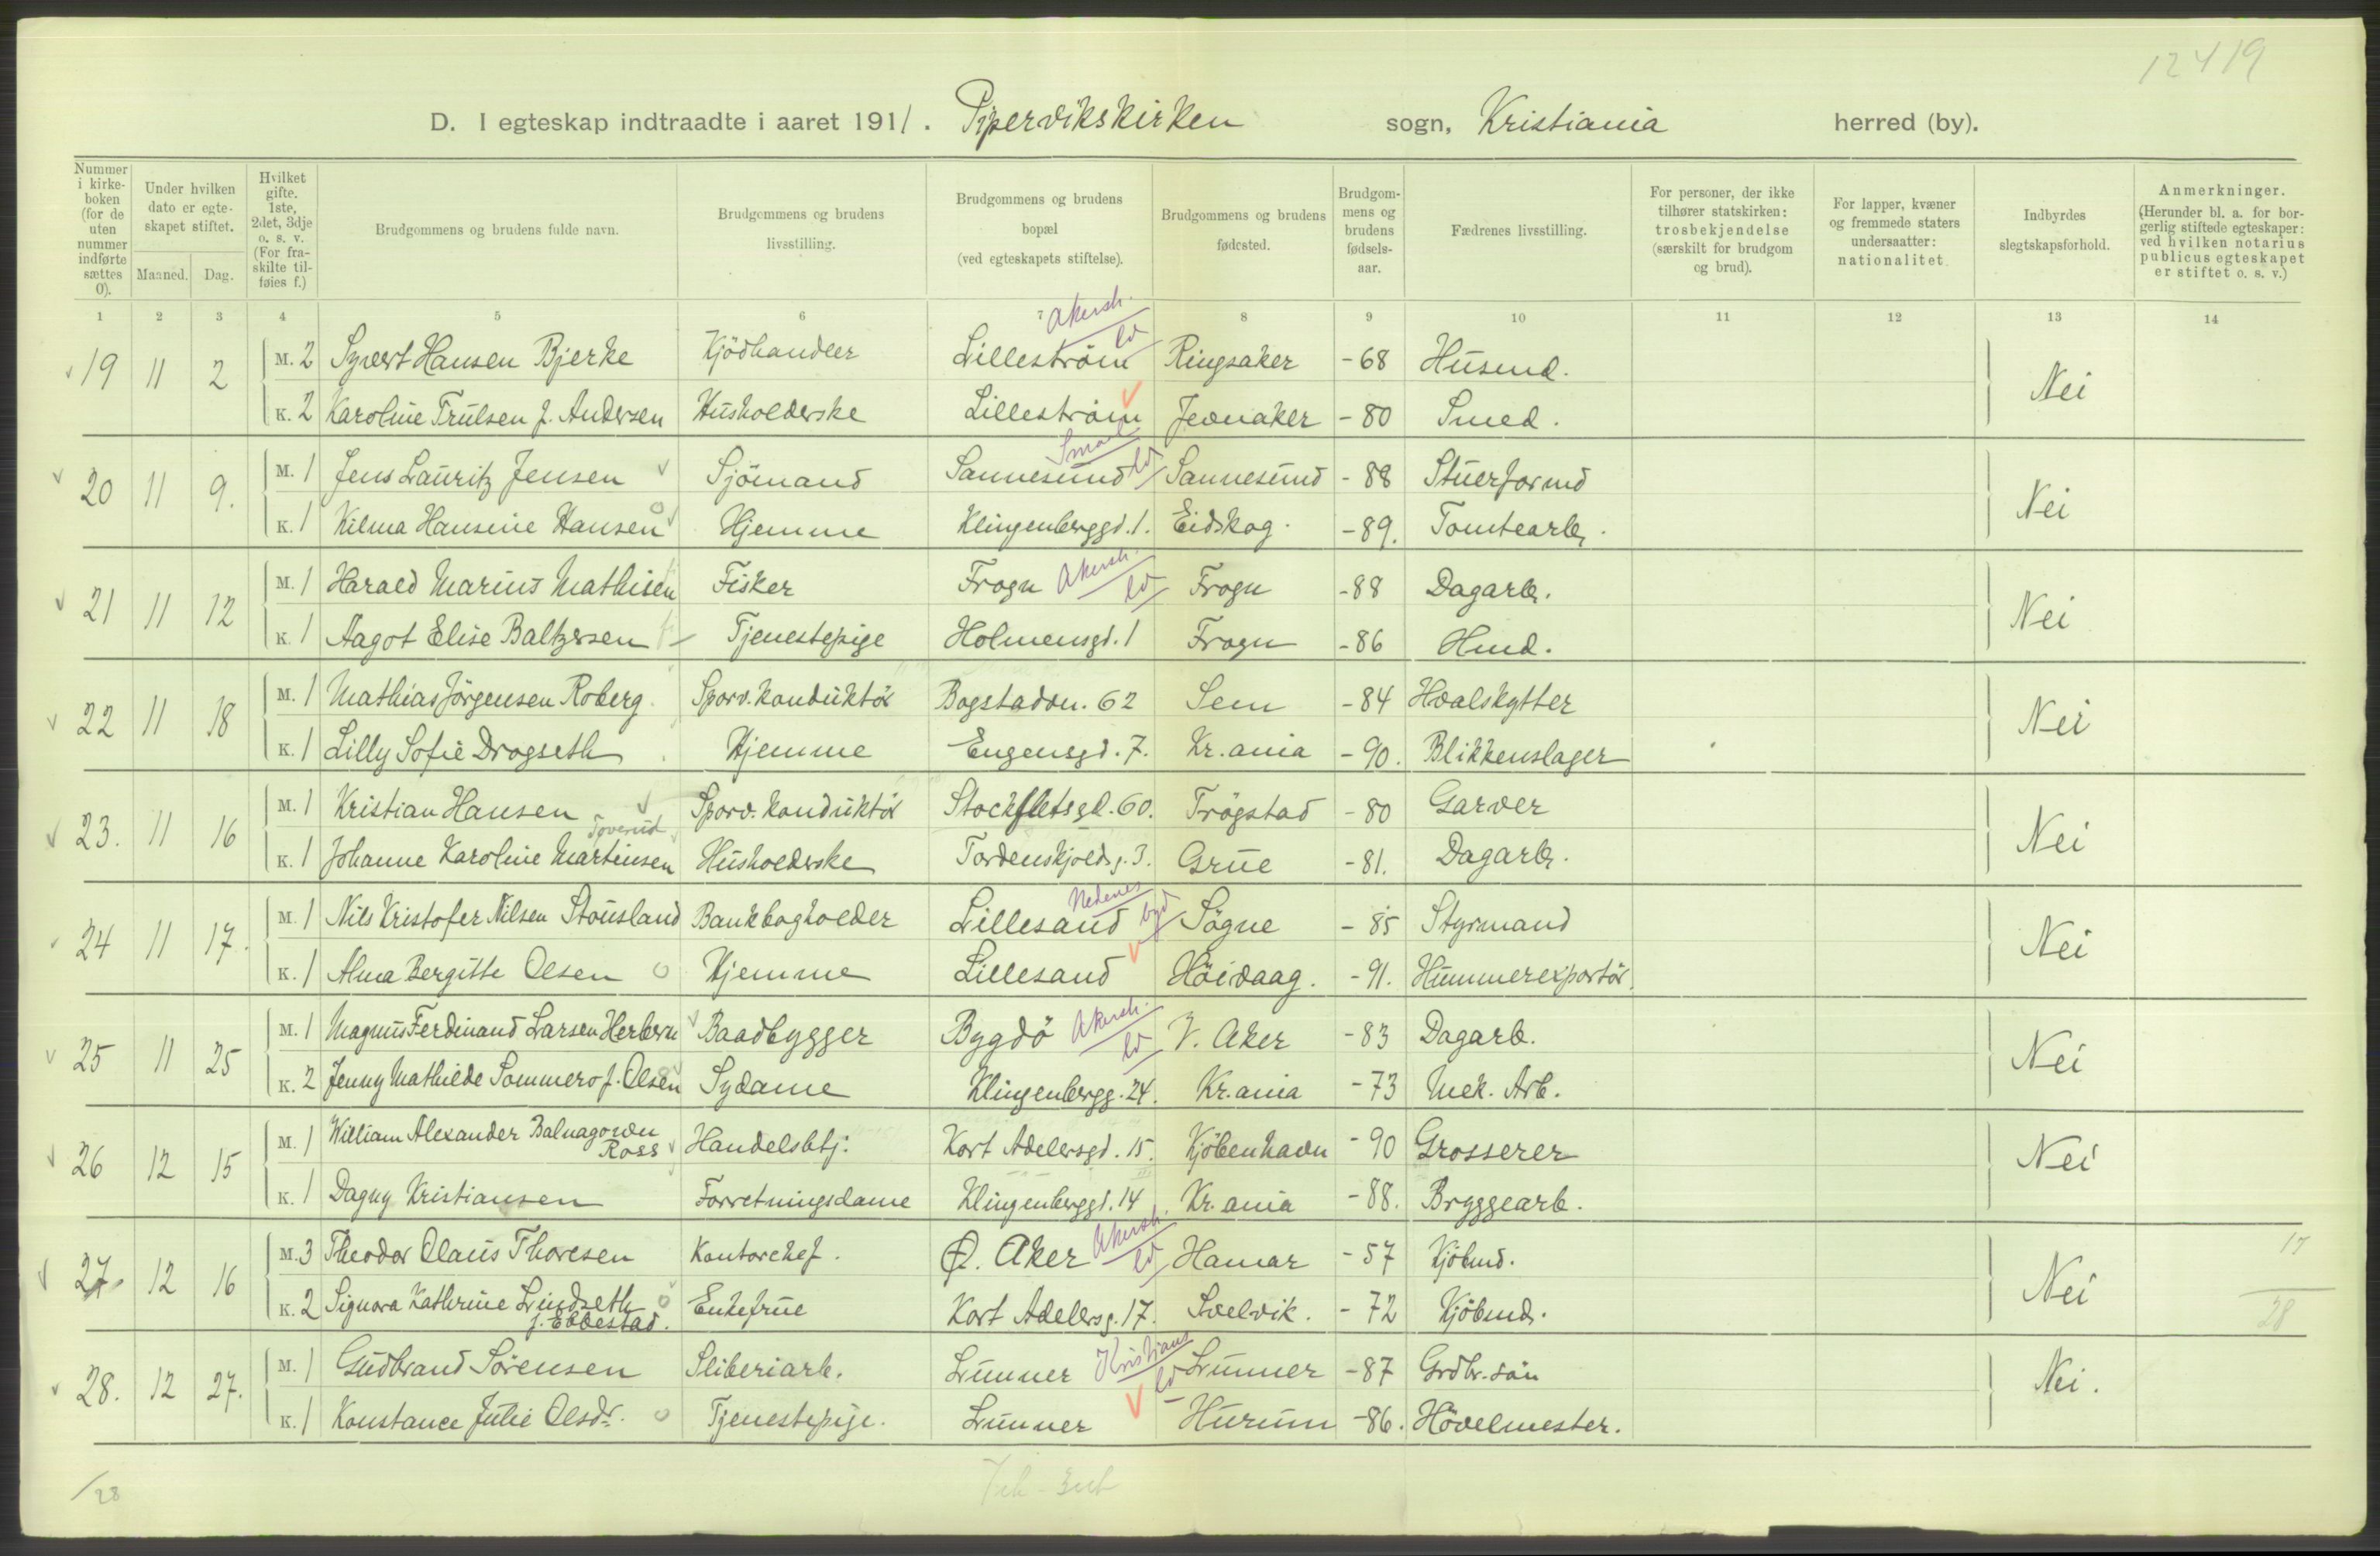 12419
D. I egteskap indtraadte i aaret 1911. Pipervikskirken sogn, Kristiania herred (by).
Nummer i kirke-boken (for de uten nummer indførte sættes 0).
Under hvilken dato er egte-skapet stiftet.
Maaned. Dag.
Hvilket gifte. 1ste, 2det, 3dje o. s. v. (For fra-skilte til-føies f.)
Brudgommens og brudens fulde navn.
Brudgommens og brudens livsstilling.
Brudgommens og brudens bopæl (ved egteskapets stiftelse).
Brudgommens og brudens fødested.
Brudgom-mens og brudens fødsels-aar.
Fædrenes livsstilling.
For personer, der ikke tilhører statskirken: trosbekjendelse (særskilt for brudgom og brud).
For lapper, kvæner og fremmede staters undersaatter: nationalitet
Indbyrdes slegtskapsforhold.
Anmerkninger. (Herunder bl. a. for bor-gerlig stiftede egteskaper: ved hvilken notarius publicus egteskapet er stiftet o. s. v.)
1 2 3 4 5 6 7 8 9 10 11 12 13 14
Akersh. ld
19 11 2 M. 2 Syvert Hansen Bjerke Kjödhandler Lilleström Ringsaker -68 Husmd. Nei
K. 2 Karoline Trulsen f. Andersen Husholderske Lilleström Jevnaker -80 Smed.
Smaal ld
20 11 9. M. 1 Jens Lauritz Jensen Sjömand Sannesund Sannesund -88 Stuerformd Nei
K. 1 Kilma Hansine Hansen Hjemme Klingenberggd. 1. Eidskog. -89. Tomtearb.
21 11 12 M. 1 Harald Marius Mathisen Fisker Frogn Akersh. ld Frogn -88 Dagarb. Nei
K. 1 Aagot Elise Baltzersen Tjenestepige Holmensgd. 1 Frogn -86 Hmd.
22 11 18 M. 1 Mathias Jörgensen Roberg Sporv. konduktör Bogstadvn. 62 Sem -84 Hvalskytter Nei
K. 1 Lilly Sofie Drogseth Hjemme Engensgd. 7. Kr.ania -90. Blikkenslager
23. 11 16 M. 1 Kristian Hansen Sporv. konduktör Stockfletsgd. 60. Trögstad -80 Garver Nei
Toverud
K. 1 Johanne Karoline Martinsen Husholderske Tordenskjoldsg. 3. Grue -81. Dagarb.
Nedenes byd
24 11 17. M. 1 Nils Kristofer Nilsen Stousland Bankbogholder Lillesand Sögne -85 Styrmand Nei
K. 1 Alma Bergitte Olsen Hjemme Lillesand Höivaag. -91. Hummerexportör.
25 11 25 M. 1 Magnus Ferdinand Larsen Herbern Baadbygger Bygdö Akersh. ld V. Aker -83 Dagarb. Nei
K. 2 Jenny Mathilde Sommero f. Olsen Sydame Klingenbergg. 24. Kr.ania -73 Mek. Arb.
26 12 15 M. 1 William Alexander Balnagowan Ross Handelsbtj. Kort Adelersgd. 15. Kjöbenhavn -90 Grosserer Nei
K. 1 Dagny Kristiansen Forretningsdame Klingenberggd. 14 Kr.ania -88. Bryggearb.
27. 12 16 M. 3 Theodor Olaus Thoresen Kontorchef. Ø. Aker Akersh. ld Hamar -57 Kjöbmd. Nei 17
K. 2 Signora Kathrine Lindseth f. Ebbestad. Enkefrue Kort Adelersg. 17. Svelvik. -72 Kjöbmd. 28
28. 12 27. M. 1 Gudbrand Sörensen Sliberiarb. Lunner Kristians ld Lunner -87 Grdbr. sön Nei.
K. 1 Konstance Julie Olsdr. Tjenestepige. Lunner Hurum -86. Hövelmester.
/28